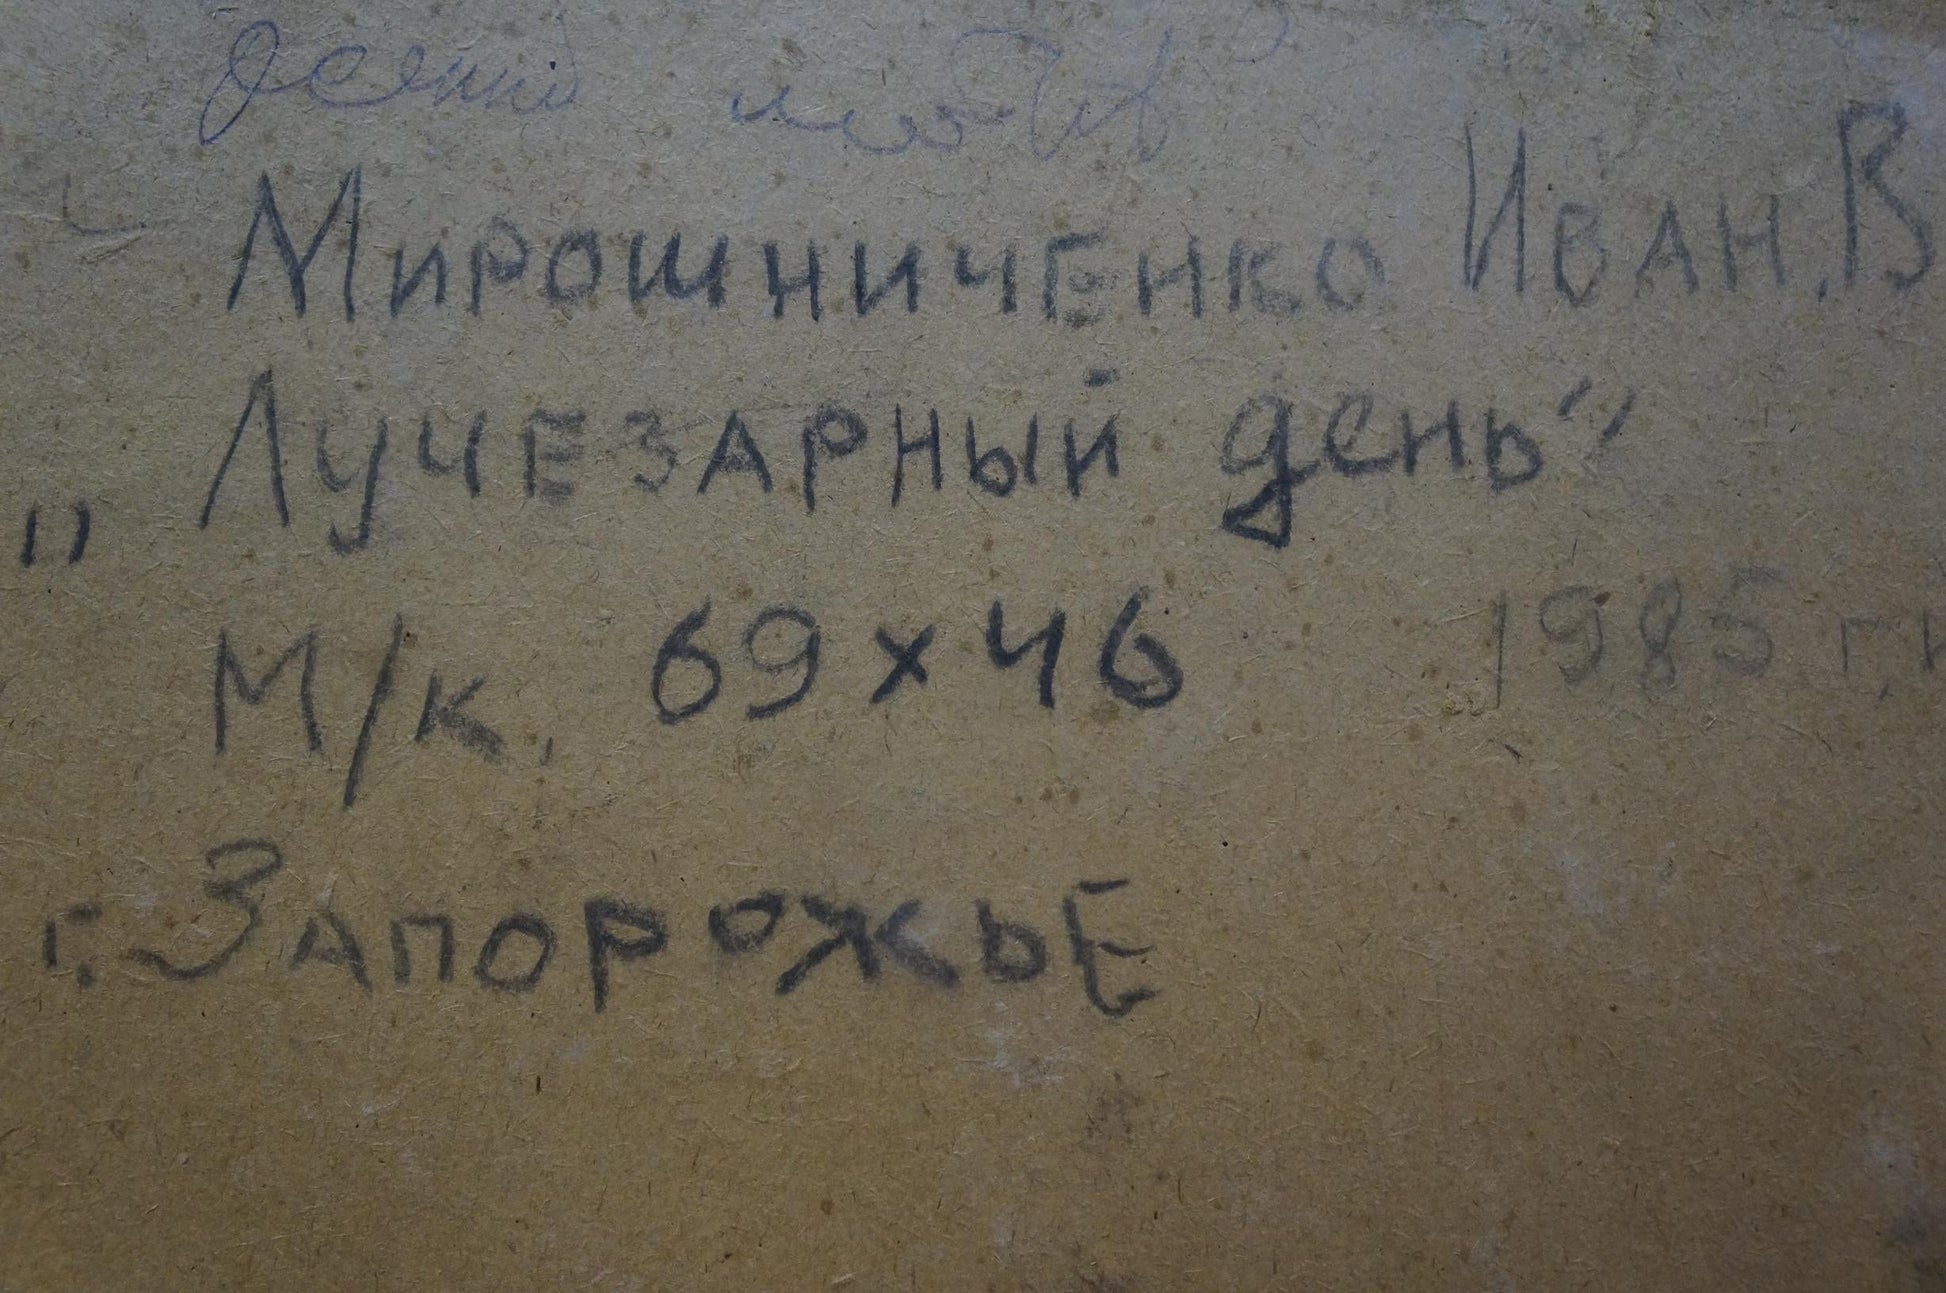 мотив
Мирошниченко Иван.В
„Лучезарный день"
М/к. 69х46 1985 г.
г. Запорожье